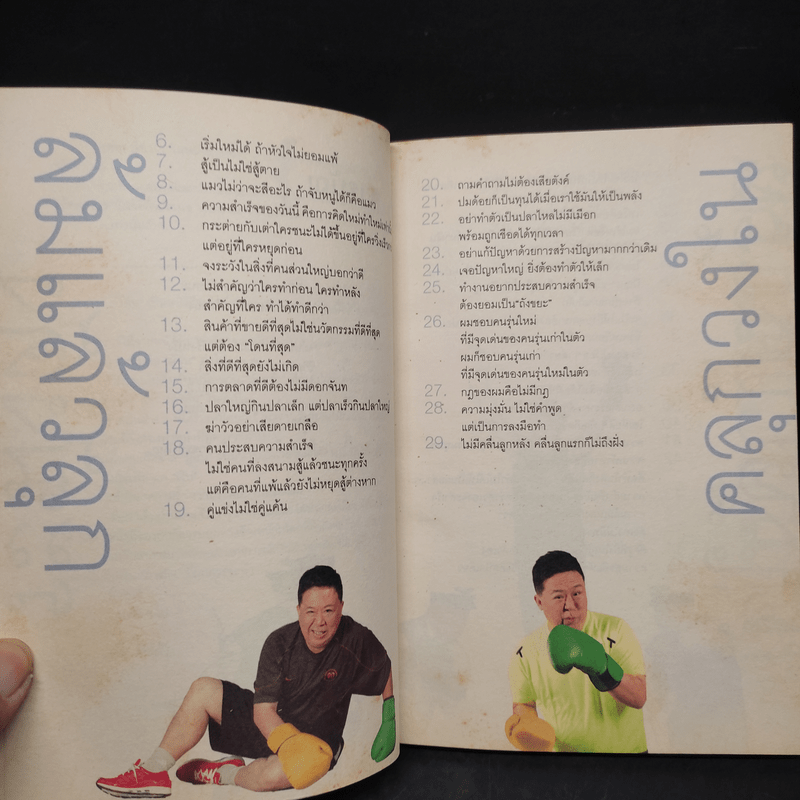 ล้มแล้วลุก
6. เริ่มใหม่ได้ ถ้าหัวใจไม่ยอมแพ้
7. สู้เป็นไม่ใช่สู้ตาย
8. แมวไม่ว่าจะสีอะไร ถ้าจับหนูได้ก็คือแมว
9. ความสำเร็จของวันนี้ คือการคิดใหม่ทำใหม่
10. กระต่ายกับเต่าใครชนะไม่ได้ขึ้นอยู่ที่ใครวิ่งเร็วกว่า
แต่อยู่ที่ใครหยุดก่อน
11. จงระวังในสิ่งที่คนส่วนใหญ่บอกว่าดี
12. ไม่สำคัญว่าใครทำก่อน ใครทำหลัง
สำคัญที่ใคร ทำได้ทำดีกว่า
13. สินค้าที่ขายดีที่สุดไม่ใช่นวัตกรรมที่ดีที่สุด
แต่ต้อง "โดนที่สุด"
14. สิ่งที่ดีที่สุดยังไม่เกิด
15. การตลาดที่ดีต้องไม่มีดอกจันท
16. ปลาใหญ่กินปลาเล็ก แต่ปลาเร็วกินปลาใหญ่
17. ฆ่าวัวอย่าเสียดายเกลือ
18. คนประสบความสำเร็จ
ไม่ใช่คนที่ลงสนามสู้แล้วชนะทุกครั้ง
แต่คือคนที่แพ้แล้วยังไม่หยุดสู้ต่างหาก
19. คู่แข่งไม่ใช่คู่แค้น
20. ถามคำถามไม่ต้องเสียตังค์
21. ปมด้อยก็เป็นทุนได้เมื่อเราใช้มันให้เป็นพลัง
22. อย่าทำตัวเป็นปลาไหลไม่มีเมือก
พร้อมถูกเชือดได้ทุกเวลา
23. อย่าแก้ปัญหาด้วยการสร้างปัญหามากกว่าเดิม
24. เจอปัญหาใหญ่ ยิ่งต้องทำตัวให้เล็ก
25. ทำงานอยากประสบความสำเร็จ
ต้องยอมเป็น"ถังขยะ"
26. ผมชอบคนรุ่นใหม่
ที่มีจุดเด่นของคนรุ่นเก่าในตัว
ผมก็ชอบคนรุ่นเก่า
ที่มีจุดเด่นของคนรุ่นใหม่ในตัว
27. กฎของผมคือไม่มีกฎ
28. ความมุ่งมั่น ไม่ใช่คำพูด
แต่เป็นการลงมือทำ
29. ไม่มีคลื่นลูกหลัง คลื่นลูกแรกก็ไม่ถึงฝั่ง